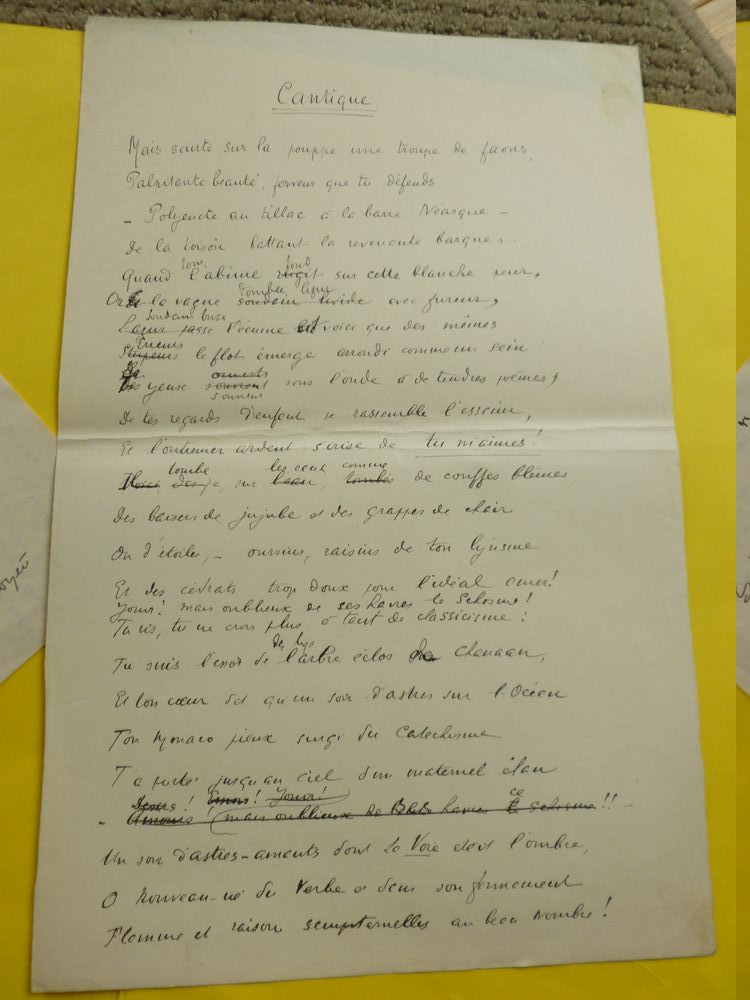 Cantique
Mais saute sur la pouppe une troupe de faons,
Palpitante beauté, ferveur que tu défends
- Polyeucte au tillac à la barre Néarque -
De la toison battant la revenante barque...
fond
Quand l'abîme rugit sur cette blanche peur,
Or la vague soudain livide avec fureur,
Soudain brise
l'écume et voici que des mêmes
le flot émerge arrondi comme un sein!
yeuse s'ouvrent sous l'onde ô de tendres poèmes,
s'ouvrent
De tes regards d'enfant se rassemble l'essaim,
Et l'outremer ardent s'irise de tu m'aimes!
tombe les ceux comme
sur l'eau, tombés de couffes blêmes
Des baisers de jujube et des grappes de chair
Ou d'étoiles, - oursins, raisins de ton lyrisme
Et des cédrats trop doux pour l'idéal amer!
Jouir! mais oublieux de ses havres le Schisme!
Tu vis, tu ne crois plus ô tant de classicisme!
Tu suis l'essor de l'arbre éclos Chanaan,
Et ton cœur qu'un soir d'astres sur l'Océan
Ton Monaco pieux surgi du Catéchisme
T'a porté jusqu'au ciel d'un maternel élan
Jouir!
mais oublieux de havres ce schisme!!
Un soir d'astres-amants dont la Voie est l'ombre,
O Nouveau-né du Verbe et dans son firmament
Flamme et raison sempiternelles au beau Nombre!